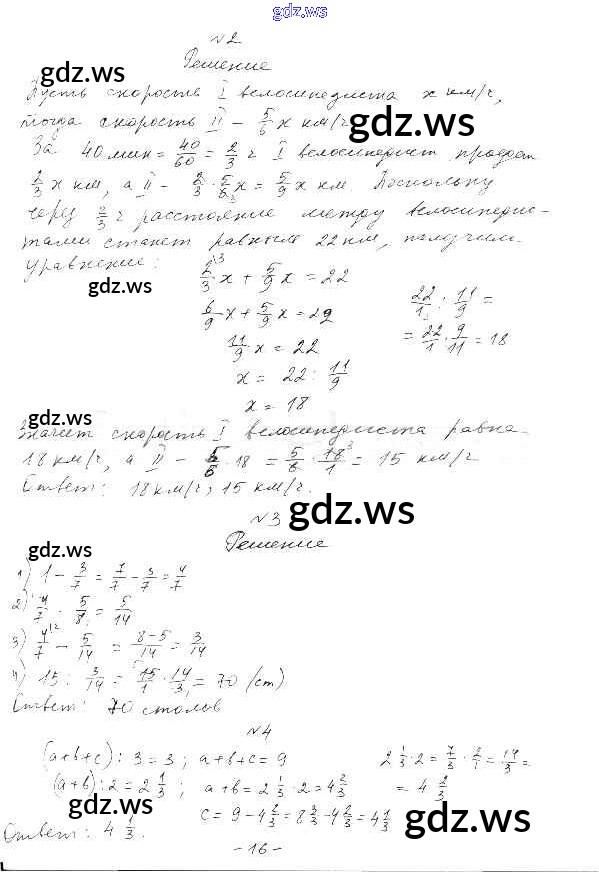 gdz.ws
№2
Решение
gdz.ws
Пусть скорость I велосипедиста x км/ч,
тогда скорость II – 5/6 x км/ч
gdz.ws
За 40 мин = 40/60 = 2/3 ч I велосипедист проедет
2/3 x км, а II – 2/3 · 5/6 x = 5/9 x км. Поскольку
через 2/3 ч расстояние между велосипедис-
тами станет равным 22 км, получим
уравнение:
gdz.ws
2/3 x + 5/9 x = 22
6/9 x + 5/9 x = 22
22/1 : 11/9 =
= 22/1 · 9/11 = 18
11/9 · x = 22
gdz.ws
gdz.ws
x = 22 : 11/9
x = 18
gdz.ws
Значит скорость I велосипедиста равна
18 км/ч, а II – 5/6 · 18 = 5/6 · 18/1 = 15 км/ч
Ответ: 18 км/ч, 15 км/ч.
gdz.ws
№3
Решение
gdz.ws
1) 1 – 3/7 = 7/7 – 3/7 = 4/7
2) 4/7 · 5/8 = 5/14
3) 4/7 – 5/14 = (8–5)/14 = 3/14
gdz.ws
4) 15 : 3/14 = 15/1 · 14/3 = 70 (ст)
Ответ: 70 столов
gdz.ws
№4
(a+b+c) : 3 = 3; a+b+c = 9
(a+b) : 2 = 2 1/3; a+b = 2 1/3 · 2 = 4 2/3
2 1/3 · 2 = 7/3 · 2/1 = 14/3 =
= 4 2/3
gdz.ws
c = 9 – 4 2/3 = 8 3/3 – 4 2/3 = 4 1/3
gdz.ws
Ответ: 4 1/3.
- 16 -